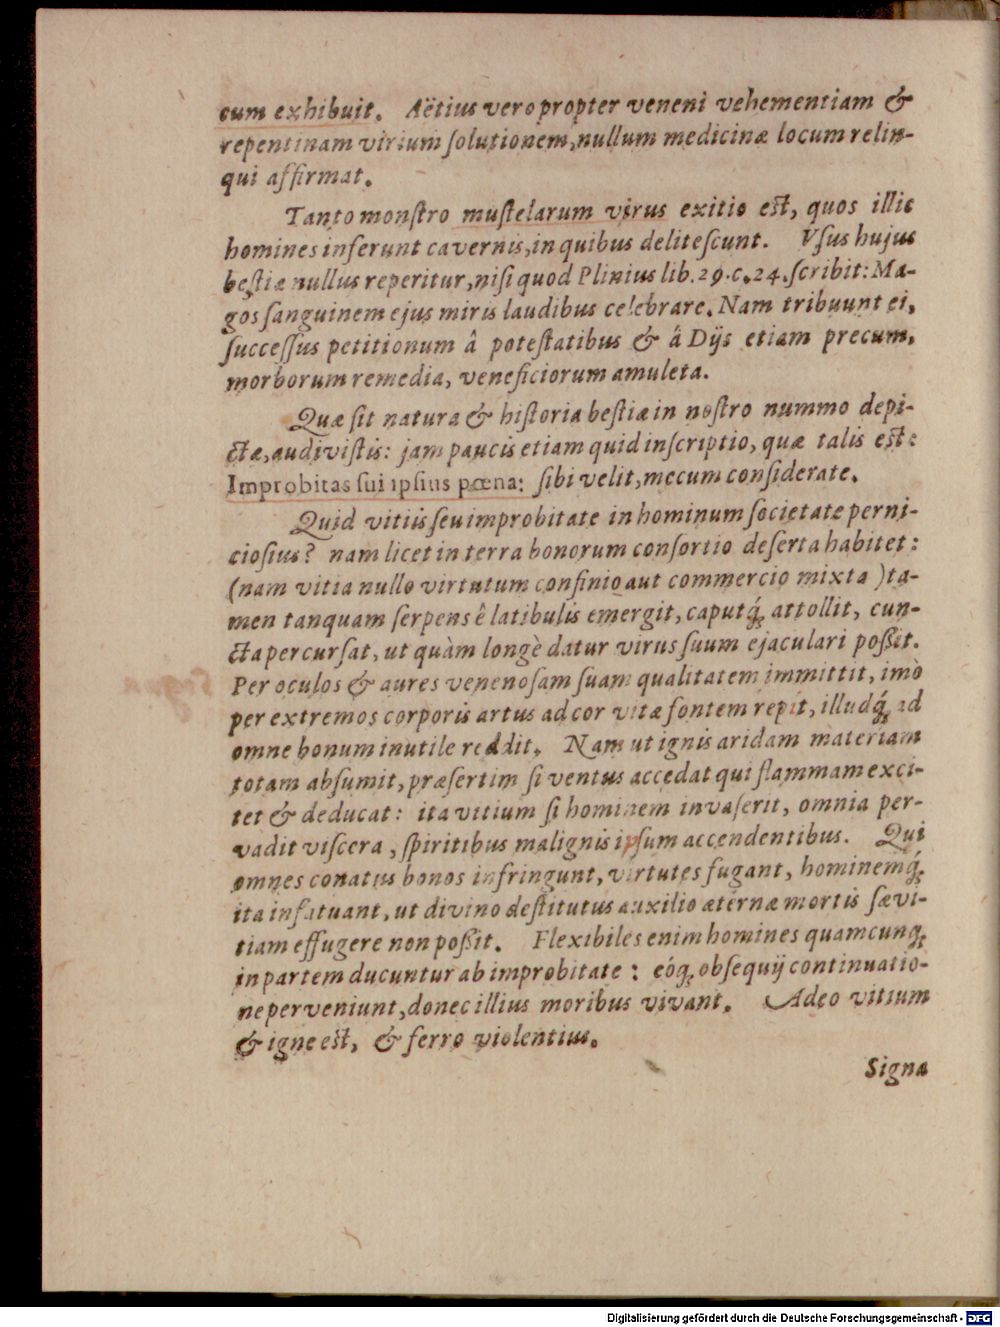 cum exhibuit. Aëtius vero propter veneni vehementiam &
repentinam virium ſolutionem, nullum medicinæ locum relin-
qui affirmat.
Tanto monſtro muſtelarum virus exitio eſt, quos illic
homines inferunt cavernis, in quibus deliteſcunt. Vſus hujus
beſtiæ nullus reperitur, niſi quod Plinius lib. 29. c. 24. ſcribit: Ma-
gos ſanguinem ejus miris laudibus celebrare. Nam tribuunt ei,
ſucceſſus petitionum â poteſtatibus & â Dijs etiam precum,
morborum remedia, veneficiorum amuleta.
Quæ ſit natura & hiſtoria beſtiæ in noſtro nummo depi-
ctæ, audiviſtis: jam paucis etiam quid inſcriptio, quæ talis eſt:
Improbitas ſui ipſius pœna: ſibi velit, mecum conſiderate.
Quid vitiis ſeu improbitate in hominum ſocietate perni-
cioſius? nam licet in terra bonorum conſortio deſerta habitet:
(nam vitia nullo virtutum confinio aut commercio mixta) ta-
men tanquam ſerpens ê latibulis emergit, caputq́; attollit, cun-
cta percurſat, ut quàm longè datur virus ſuum ejaculari poßit.
Per oculos & aures venenoſam ſuam qualitatem immittit, imò
per extremos corporis artus ad cor vitæ fontem repit, illudq́; ad
omne bonum inutile reddit. Nam ut ignis aridam materiam
totam abſumit, præſertim ſi ventus accedat qui flammam exci-
tet & deducat: ita vitium ſi hominem invaſerit, omnia per-
vadit viſcera, ſpiritibus malignis ipſum accendentibus. Qui
omnes conatus bonos infringunt, virtutes fugant, hominemq́;
ita infatuant, ut divino deſtitutus auxilio æternæ mortis ſævi-
tiam effugere non poßit. Flexibiles enim homines quamcunq;
in partem ducuntur ab improbitate: eóq; obſequij continuatio-
ne perveniunt, donec illius moribus vivant. Adeo vitium
& igne eſt, & ferro violentius.
Signa
Digitalisierung gefördert durch die Deutsche Forschungsgemeinschaft - DFG